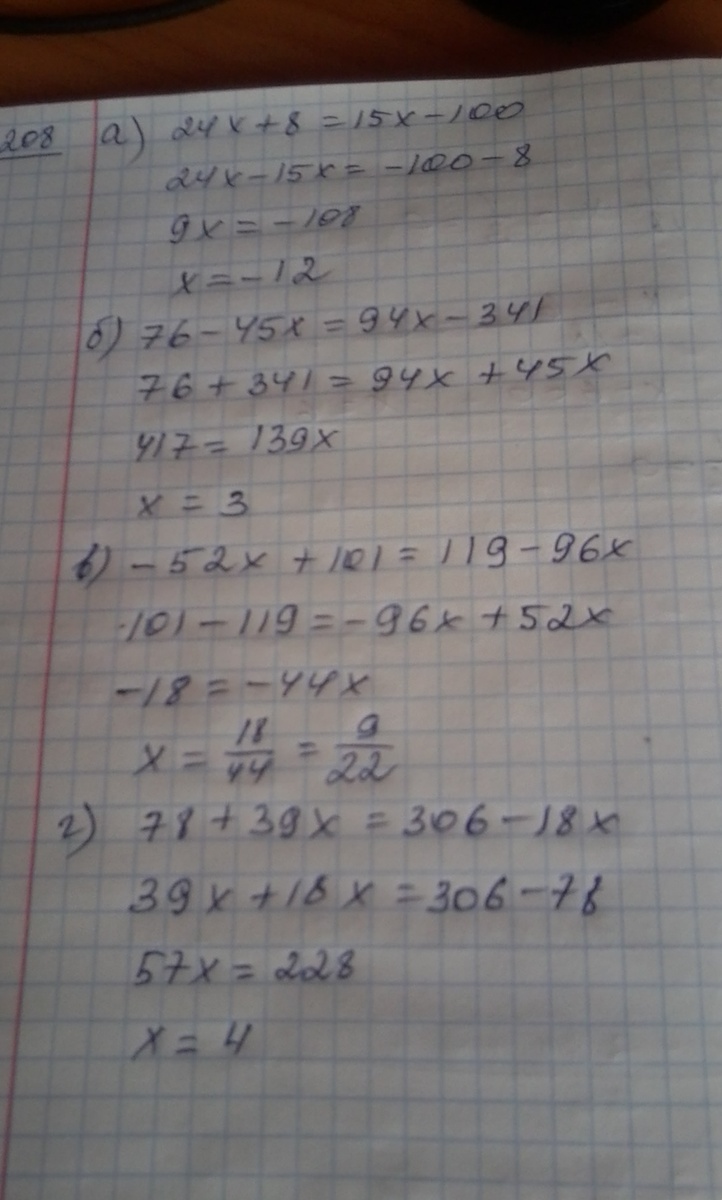 208 а) 24x + 8 = 15x - 100
24x - 15x = -100 - 8
9x = -108
x = -12
б) 76 - 45x = 94x - 341
76 + 341 = 94x + 45x
417 = 139x
x = 3
в) - 52x + 101 = 119 - 96x
101 - 119 = -96x + 52x
-18 = -44x
x = 18/44 = 9/22
г) 78 + 39x = 306 - 18x
39x + 18x = 306 - 78
57x = 228
x = 4